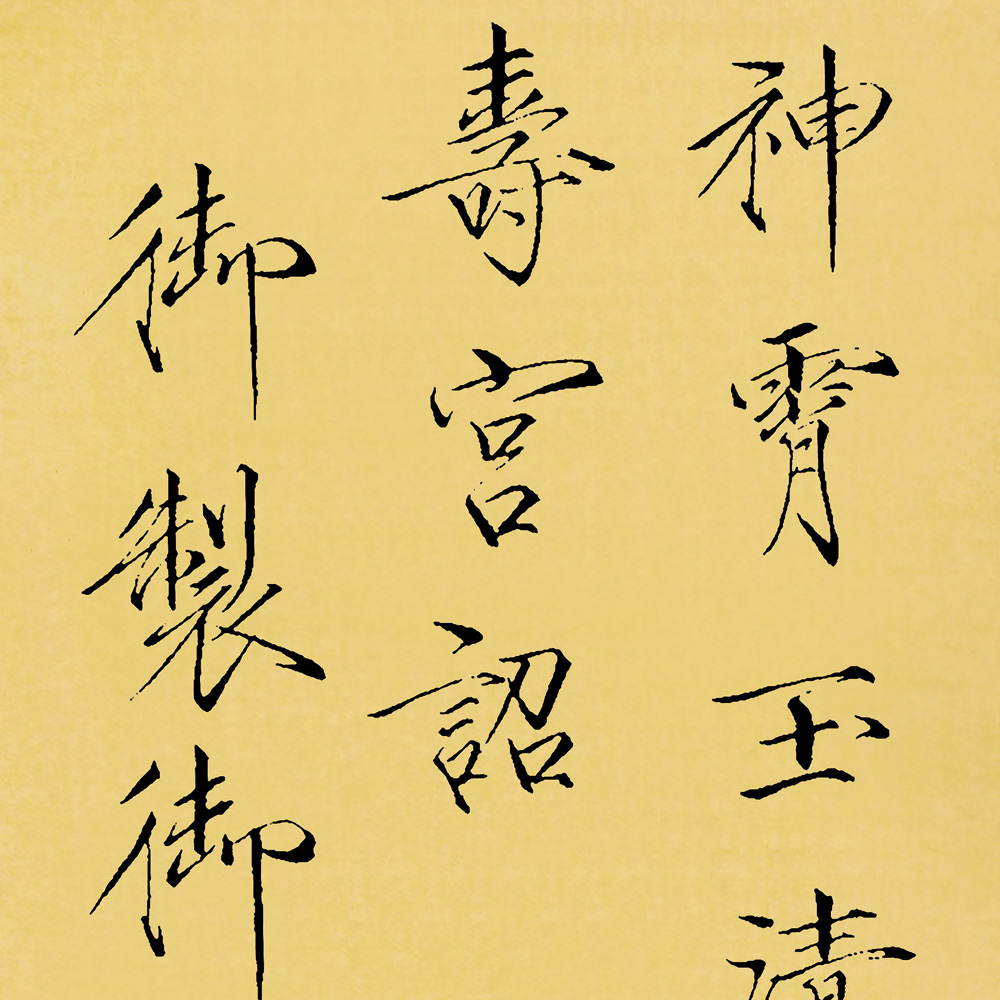 神霄玉清
壽宮詔
御製御